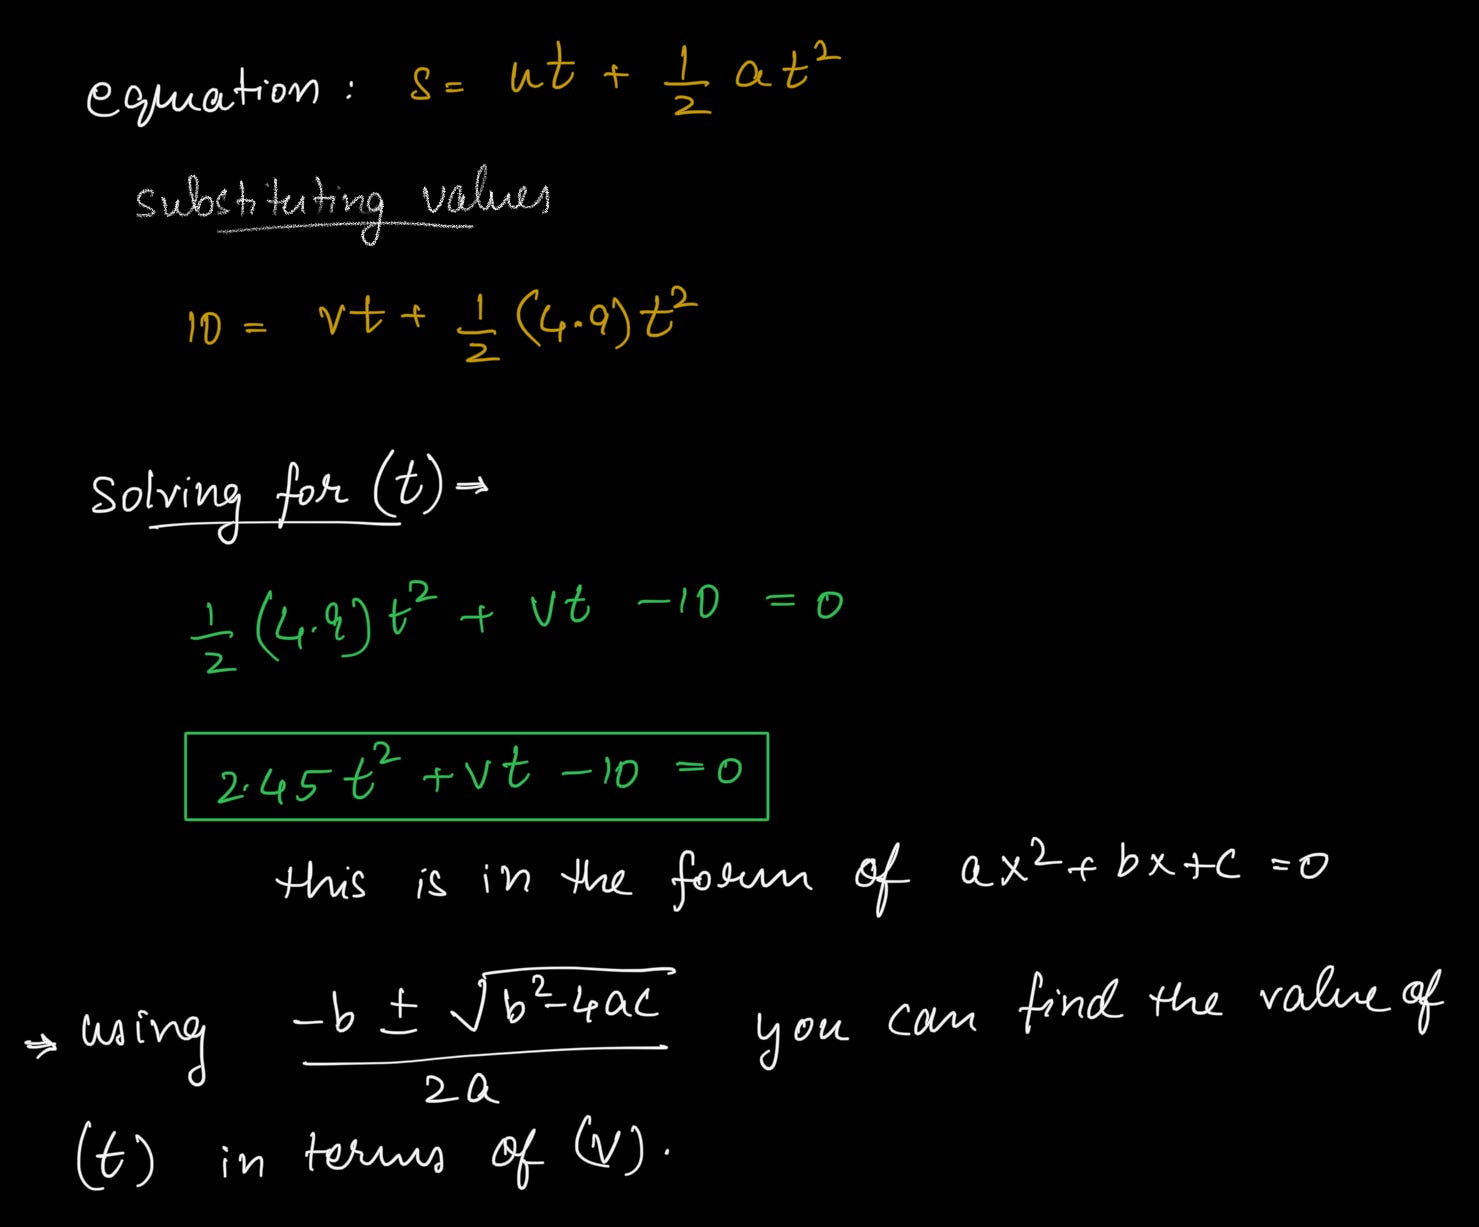 equation: s = ut + 1/2 at²
substituting values
10 = vt + 1/2 (4.9) t²
Solving for (t) →
1/2 (4.9) t² + vt - 10 = 0
2.45 t² + vt - 10 = 0
this is in the form of ax² + bx + c = 0
→ using (-b ± √(b² - 4ac)) / 2a you can find the value of
(t) in terms of (v).